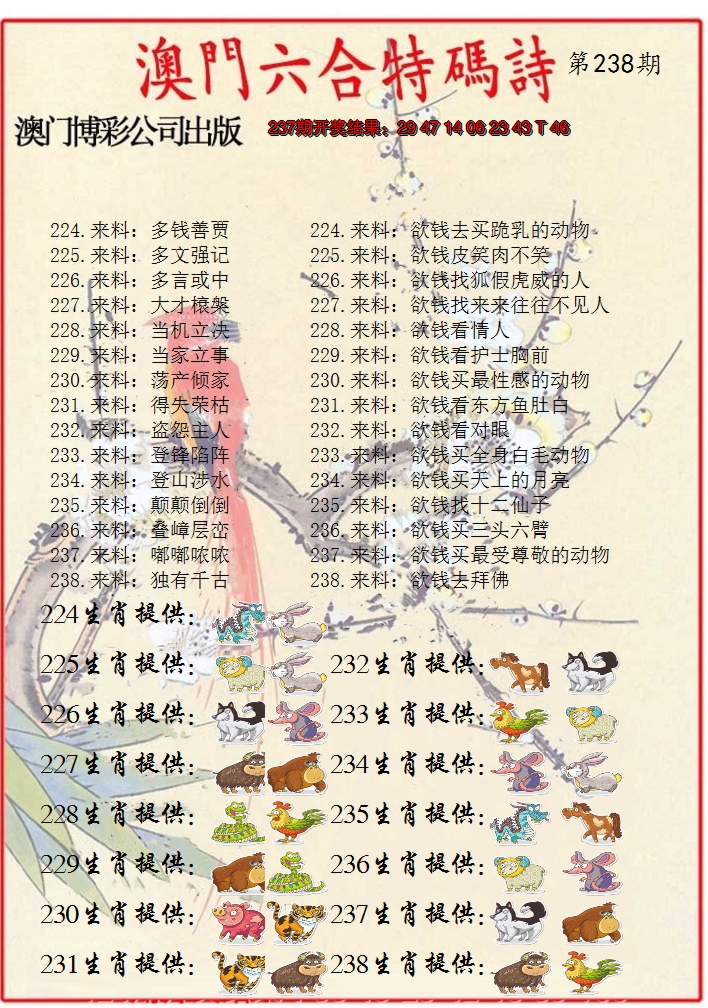 澳門六合特碼詩 第238期
澳门博彩公司出版 237期开奖结果：29 47 14 06 23 43 T 46
224.来料：多钱善贾 224.来料：欲钱去买跪乳的动物
225.来料：多文强记 225.来料：欲钱皮笑肉不笑
226.来料：多言或中 226.来料：欲钱找狐假虎威的人
227.来料：大才榱槃 227.来料：欲钱找来来往往不见人
228.来料：当机立决 228.来料：欲钱看情人
229.来料：当家立事 229.来料：欲钱看护士胸前
230.来料：荡产倾家 230.来料：欲钱买最性感的动物
231.来料：得失荣枯 231.来料：欲钱看东方鱼肚白
232.来料：盗怨主人 232.来料：欲钱看对眼
233.来料：登锋陷阵 233.来料：欲钱买全身白毛动物
234.来料：登山涉水 234.来料：欲钱买天上的月亮
235.来料：颠颠倒倒 235.来料：欲钱找十二仙子
236.来料：叠嶂层峦 236.来料：欲钱买三头六臂
237.来料：嘟嘟哝哝 237.来料：欲钱买最受尊敬的动物
238.来料：独有千古 238.来料：欲钱去拜佛
224生肖提供：
225生肖提供： 232生肖提供：
226生肖提供： 233生肖提供：
227生肖提供： 234生肖提供：
228生肖提供： 235生肖提供：
229生肖提供： 236生肖提供：
230生肖提供： 237生肖提供：
231生肖提供： 238生肖提供：